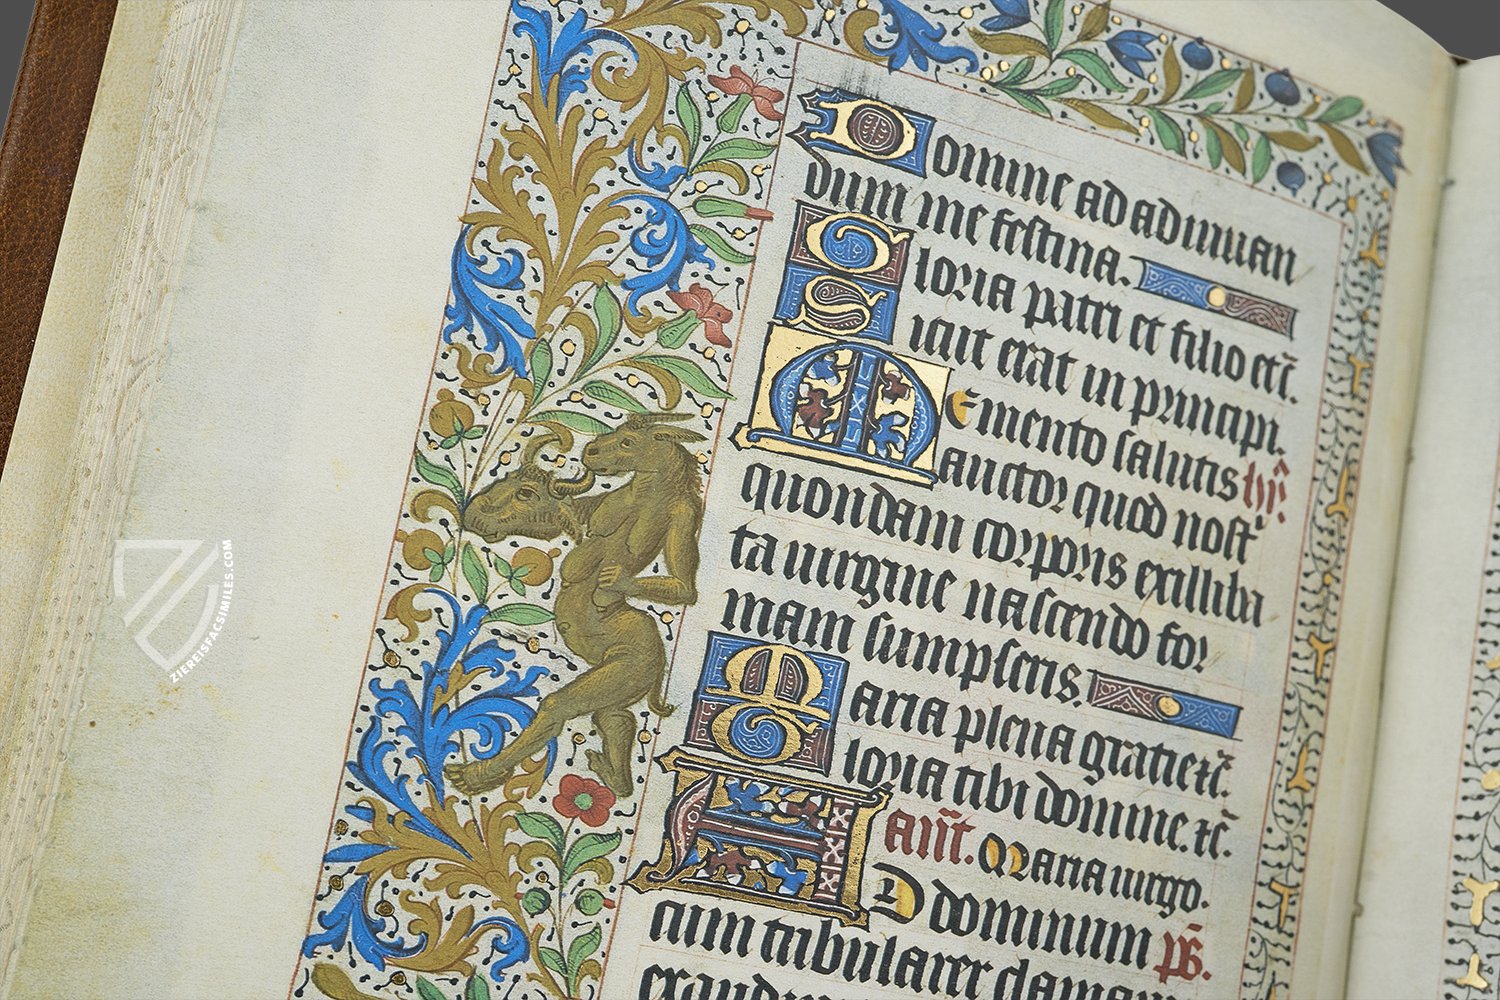 Domine ad adiuuan
dum me festina.
Gloria patri et filio etc̄.
Sicut erat in principi.
Memento salutis hȳ.
auctor quod nost
quondam corporis ex illiba
ta uirgine nascendo for
mam sumpseris.
Maria plena gratie tc̄.
Gloria tibi domine. tc̄.
Añt. Maria uirgo.
AD dominum pš.
cum tribularer clamaui
ZIEREISFACSIMILES.COM